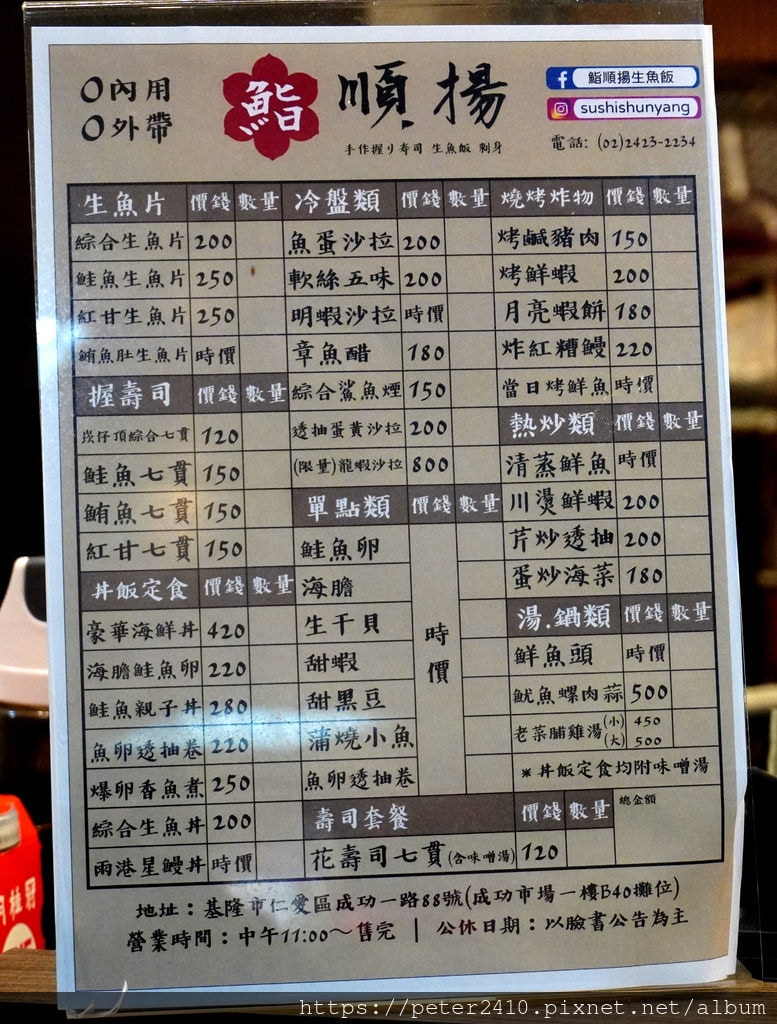 O內用
O外帶
鮨
順揚
手作握り寿司 生魚飯 刺身
鮨順揚生魚飯
sushishunyang
電話: (02)2423-2234
生魚片 價錢 數量
綜合生魚片 200
鮭魚生魚片 250
紅甘生魚片 250
鮪魚肚生魚片 時價
握壽司 價錢 數量
崁仔頂綜合七貫 120
鮭魚七貫 150
鮪魚七貫 150
紅甘七貫 150
丼飯定食 價錢 數量
豪華海鮮丼 420
海膽鮭魚卵 220
鮭魚親子丼 280
魚卵透抽卷 220
爆卵香魚煮 250
綜合生魚丼 200
兩港星鰻丼 時價
冷盤類 價錢 數量
魚蛋沙拉 200
軟絲五味 200
明蝦沙拉 時價
章魚醋 180
綜合鯊魚煙 150
透抽蛋黃沙拉 200
(限量)龍蝦沙拉 800
單點類 價錢 數量
鮭魚卵
海膽
生干貝
甜蝦
甜黑豆
蒲燒小魚
魚卵透抽卷
時價
壽司套餐 價錢 數量
花壽司七貫(含味噌湯) 120
燒烤炸物 價錢 數量
烤鹹豬肉 150
烤鮮蝦 200
月亮蝦餅 180
炸紅糟鰻 220
當日烤鮮魚 時價
熱炒類 價錢 數量
清蒸鮮魚 時價
川燙鮮蝦 200
芹炒透抽 200
蛋炒海菜 180
湯.鍋類 價錢 數量
鮮魚頭 時價
魷魚螺肉蒜 500
老菜脯雞湯 (小) 450
(大) 500
*丼飯定食均附味噌湯
總金額
地址：基隆市仁愛區成功一路88號(成功市場一樓B40攤位)
營業時間：中午11:00～售完 | 公休日期：以臉書公告為主
https://peter2410.pixnet.net/album